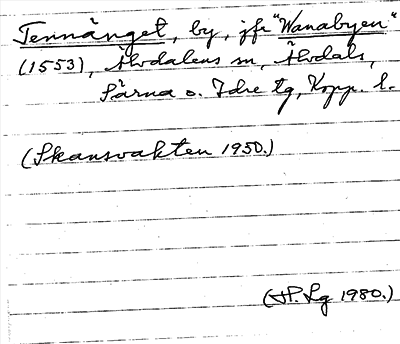 Tennänget, by, jfr "Wanabyen"
(1553), Älvdalens sn, Älvdals,
Särna o. Idre tg, Kopp. l.
(Skansvakten 1950.)
(H.Lg 1980.)